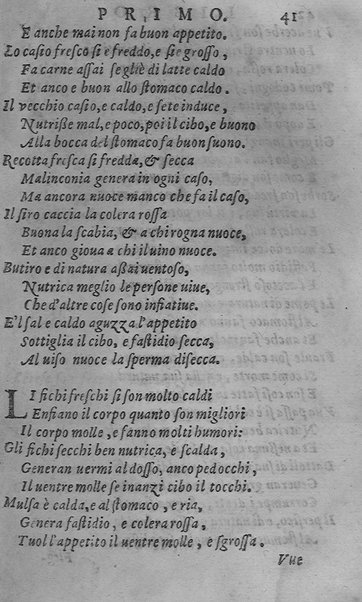 PRIMO. 41
E anche mai non fa buon appetito.
Lo casio fresco si e freddo, e sie grosso,
Fa carne assai se gliè di latte caldo
Et anco e buon allo stomaco caldo.
Il vecchio casio, e caldo, e sete induce,
Nutrisse mal, e poco, poi il cibo, e buono
Alla bocca del stomaco fa buon suono.
Recotta fresca si fredda, & secca
Malinconia genera in ogni caso,
Ma ancora nuoce manco che fa il caso,
Il siro caccia la colera rossa
Buona la scabia, & a chi rogna nuoce,
Et anco gioua a chi il uino nuoce.
Butiro e di natura assai uentoso,
Nutrica meglio le persone uiue,
Che d'altre cose sono infiatiue.
E'l sal e caldo aguzza l'appetito
Sottiglia il cibo, e fastidio secca,
Al uiso nuoce la sperma disecca.
LI fichi freschi si son molto caldi
Enfiano il corpo quanto son migliori
Il corpo molle, e fanno molti humori:
Gli fichi secchi ben nutrica, e scalda,
Generan uermi al dosso, anco pedocchi,
Il uentre molle se inanzi cibo il tocchi.
Mulsa è calda, e al stomaco, e ria,
Genera fastidio, e colera rossa,
Tuol l'appetito il uentre molle, e sgrossa.
Vue